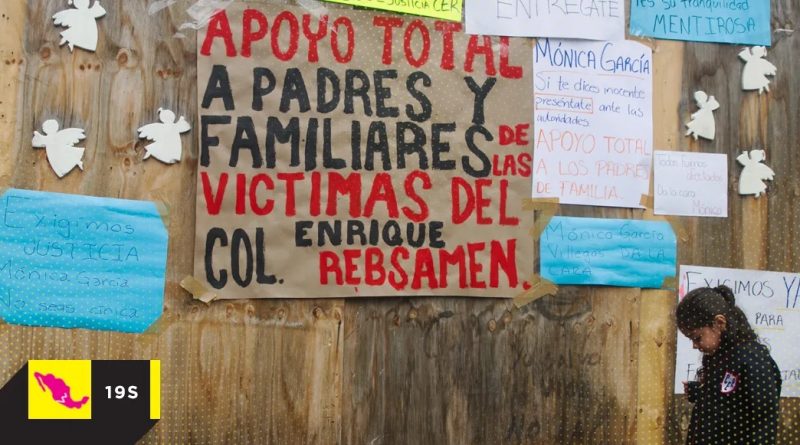 JUSTICIA CER
ENTRÉGATE
su tranquilidad
MENTIROSA
APOYO TOTAL
A PADRES Y
FAMILIARES DE LAS
VICTIMAS DEL
COL. ENRIQUE
REBSAMEN.
MÓNICA GARCÍA
Si te dices inocente
preséntate ante las
autoridades.
APOYO TOTAL
A LOS PADRES
DE FAMILIA.
Todos fuimos afectados
Da la cara
Mónica
Exigimos
JUSTICIA
Mónica García
No seas cínica
Mónica García
Villegas DA LA
CARA
EXIGIMOS YA
PARA
19S